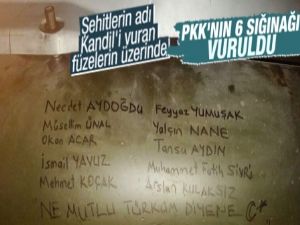 Şehitlerin adı
Kandil'i vuran
füzelerin üzerinde
PKK'NIN 6 SIĞINAĞI
VURULDU
Necdet AYDOĞDU Feyyaz YUMUŞAK
Müsellim ÜNAL Yalçın NANE
Okan ACAR Tansu AYDIN
İsmail YAVUZ Muhammet Fatih SİVRİ
Mehmet KOÇAK Arslan KULAKSIZ
NE MUTLU TÜRKÜM DİYENE